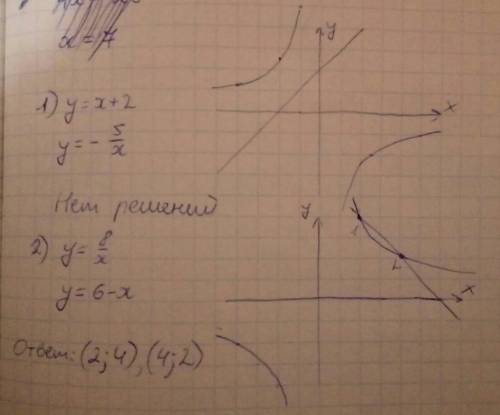 x = 7
1) y = x + 2
y = - 5/x
Нет решений
2) y = 8/x
y = 6 - x
Ответ: (2; 4), (4; 2)
y
x
y
x
1
2